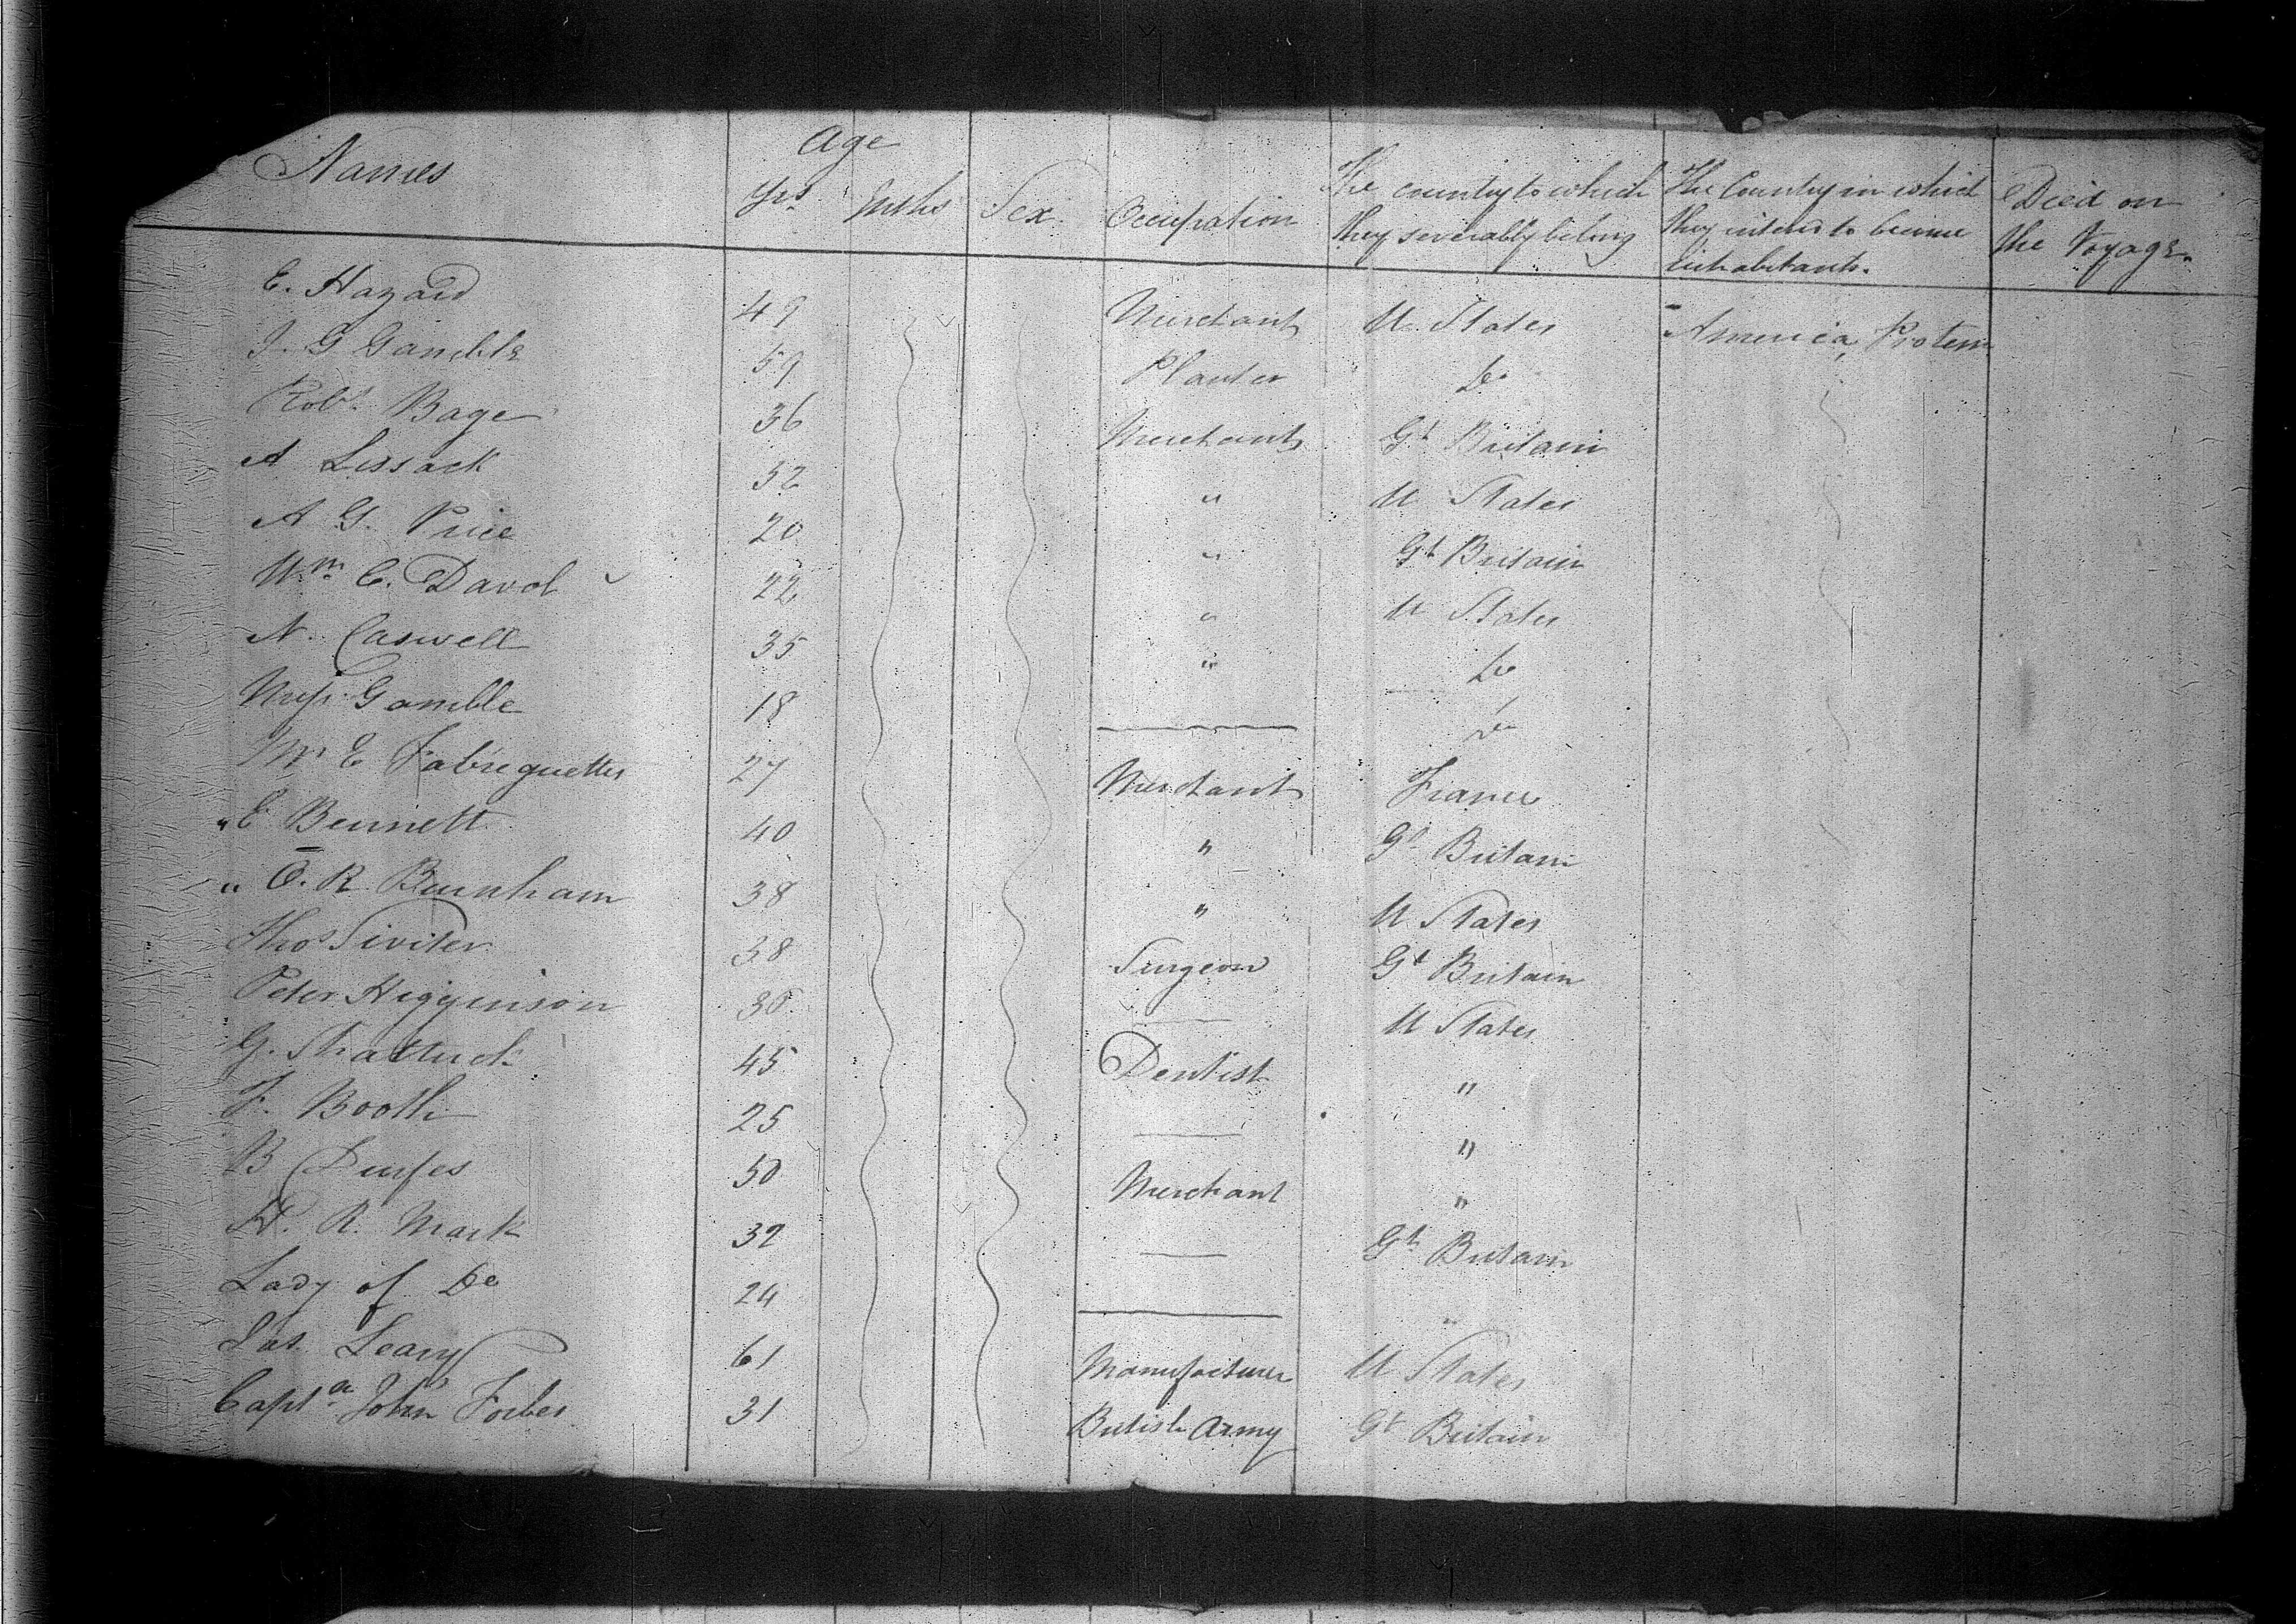 Names Age Yrs Mths Sex Occupation The country to which they severally belong The Country in which they intend to become inhabitants. Died on the Voyage.
E. Hazard 49 Merchant U. States America, Protem
J. G Gamble 59 Planter Do
Robt. Bage 36 Merchant Gt Britain
A Lissack 52 " U States
A G. Price 20 " Gt Britain
Wm. C. Davol 22 " U States
N. Caswell 35 " Do
Miss Gamble 18 — Do
Mr E Fabreguettes 27 Merchant France
" E Bennett 40 " Gt Britain
" O. R. Burnham 38 " U States
Thos Siviter 38 Surgeon Gt Britain
Peter Higginson 36 — U States
G. Shattuck 45 Dentist "
F. Booth 25 — "
B Durfee 50 Merchant "
H. R. Mark 32 — Gt Britain
Lady of Do 24 — "
Jas. Leary 61 Manufacturer U States
Captn John Forbes 31 British Army Gt Britain